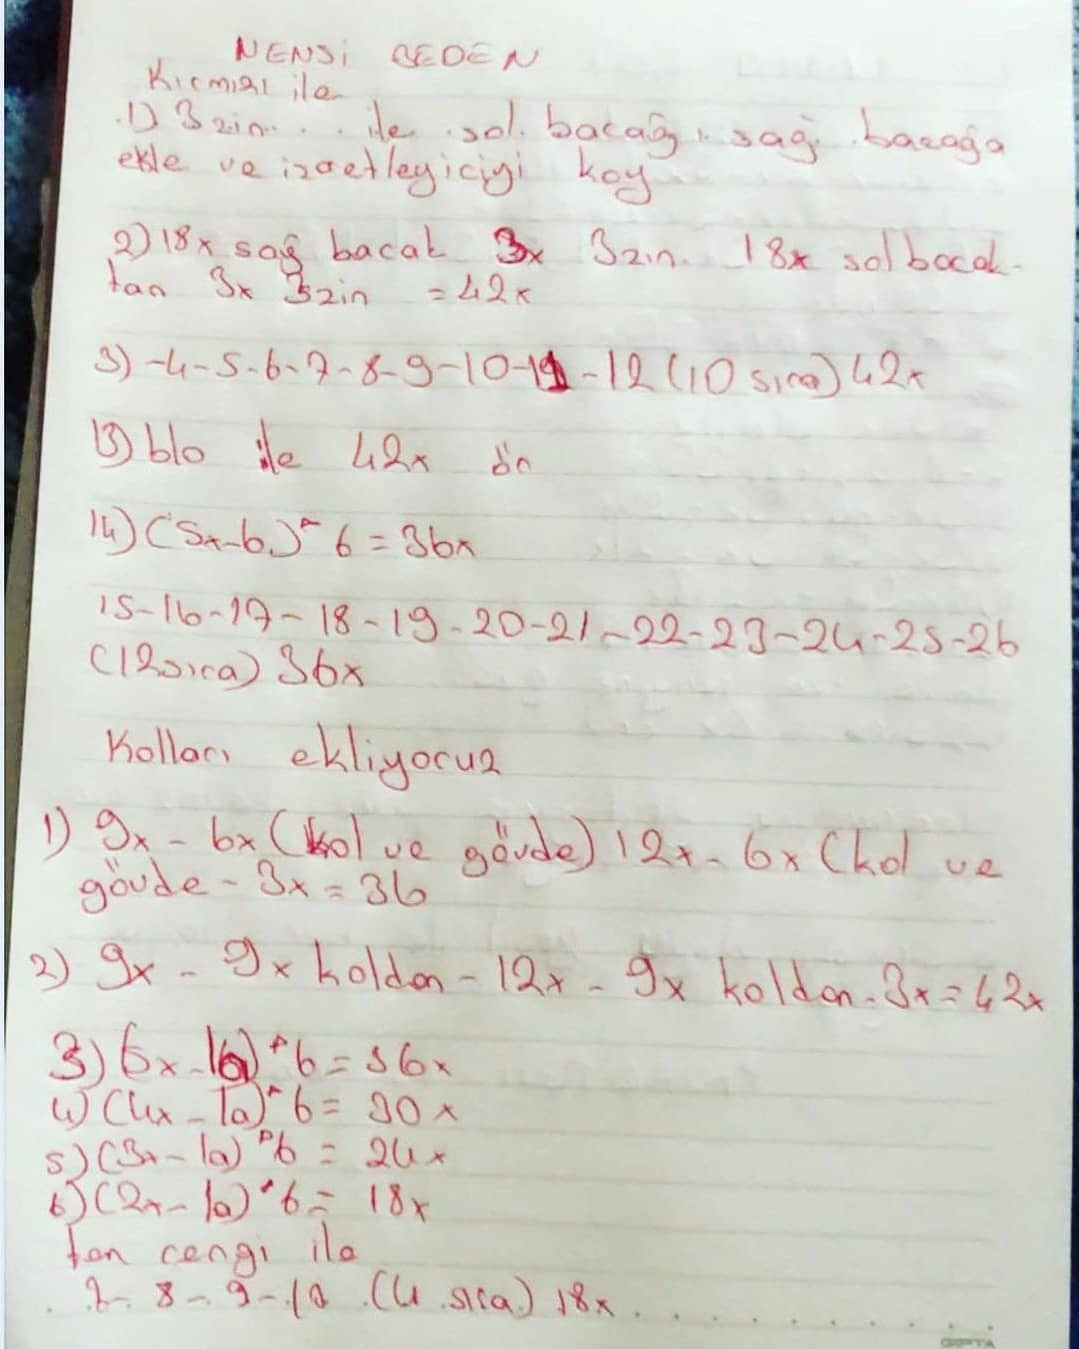 NENSİ BEDEN
Kırmızı ile
1) 3 zin... ile sol. bacağı sağ bacağa
ekle ve işaetleyiciyi koy
2) 18x sağ bacak 3x 3zin. 18x sol bacak-
tan 3x 3zin = 42x
3) -4-5-6-7-8-9-10-11-12 (10 sıra) 42x
13) blo ile 42x ön
14) (5x-b)*6=36x
15-16-17-18-19-20-21-22-23-24-25-26
(12sıra) 36x
Kolları ekliyoruz
1) 9x - 6x (kol ve gövde) 12x - 6x (kol ve
gövde - 3x = 36
2) 9x - 9x koldan - 12x - 9x koldan - 3x = 42x
3) 5x - 1a) *6 = 36x
4) (4x - 1a) *6 = 30x
5) (3x - 1a) *6 = 24x
6) (2x - 1a) *6 = 18x
ten rengi ile
7- 8 - 9 - 10 (4 sıra) 18x